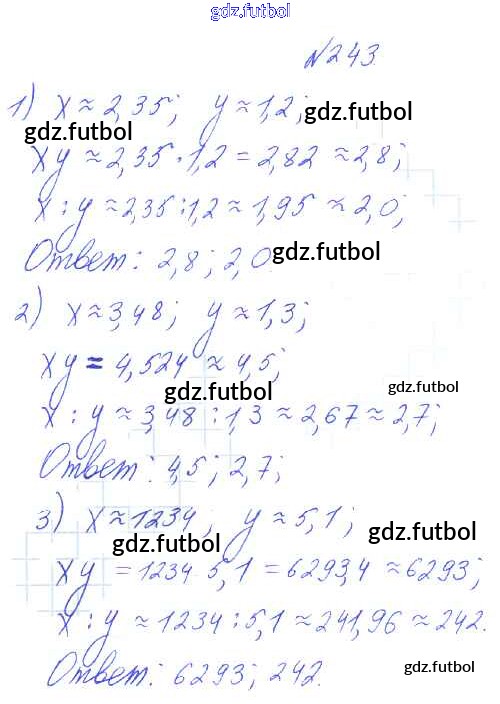 gdz.futbol
№243.
1) x ≈ 2,35; y ≈ 1,2;
gdz.futbol
gdz.futbol
xy ≈ 2,35 · 1,2 = 2,82 ≈ 2,8;
x : y ≈ 2,35 : 1,2 ≈ 1,95 ≈ 2,0;
Ответ: 2,8; 2,0.
gdz.futbol
2) x ≈ 3,48; y ≈ 1,3;
xy = 4,524 ≈ 4,5;
gdz.futbol
gdz.futbol
x : y ≈ 3,48 : 1,3 ≈ 2,67 ≈ 2,7;
Ответ: 4,5; 2,7;
3) x ≈ 1234; y ≈ 5,1;
gdz.futbol
gdz.futbol
xy = 1234 · 5,1 = 6293,4 ≈ 6293;
x : y ≈ 1234 : 5,1 ≈ 241,96 ≈ 242.
Ответ: 6293; 242.
gdz.futbol
gdz.futbol